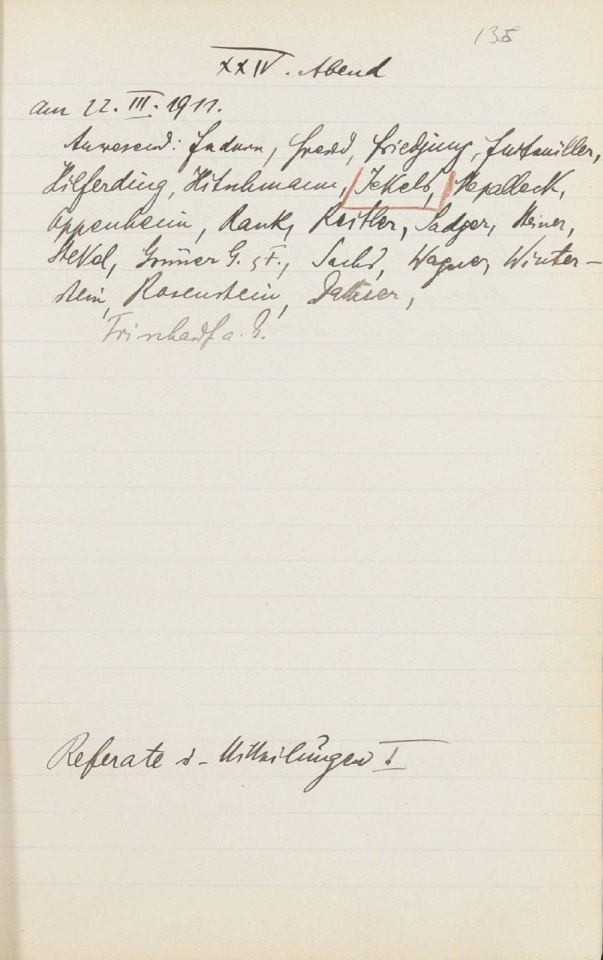 138
XXIV. Abend
am 22. III. 1911.
Anwesend: Federn, Freud, Friedjung, Furtmüller,
Hilferding, Hitschmann, Jekels, Klemperer,
Oppenheim, Rank, Reitler, Sadger, Steiner,
Stekel, Grüner G. u F., Sachs, Wagner, Winter-
stein, Rosenstein, Dattner,
Frischauf a. G.
Referate u. Mitteilungen I